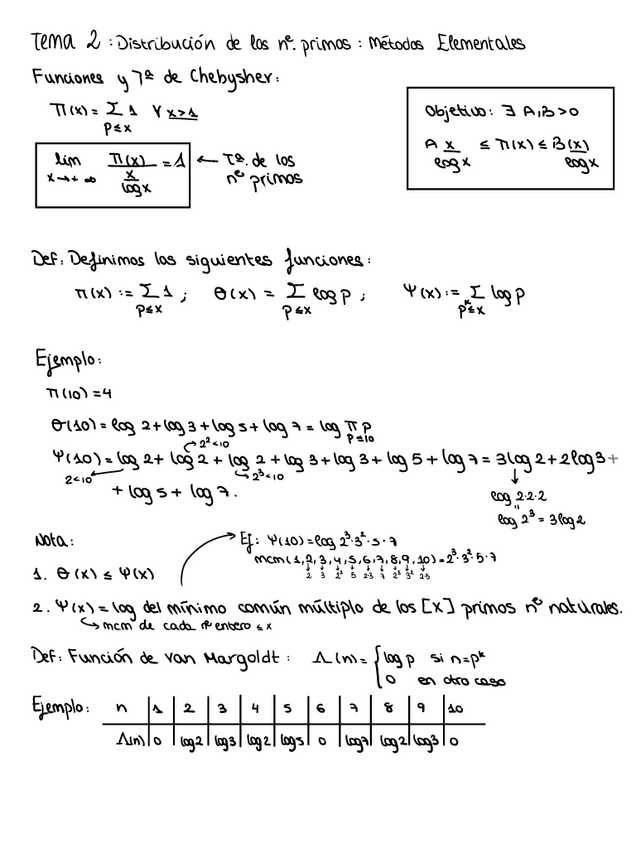 Tema 2 : Distribución de los nº. primos : Métodos Elementales
Funciones y Tª de Chebysher:
Π(x) = Σ 1 ∀ x>1
p≤x
lim Π(x) / (x / log x) = 1
x→+∞
← Tª. de los nº primos
Objetivo: ∃ A,B>0
A x/log x ≤ Π(x) ≤ B (x)/log x
Def: Definimos las siguientes funciones:
π(x) := Σ 1 ; θ(x) = Σ log p ; Ψ(x) := Σ log p
p≤x p≤x pᵏ≤x
Ejemplo:
Π(10) = 4
θ(10) = log 2 + log 3 + log 5 + log 7 = log Π p
p≤10
2²<10
Ψ(10) = log 2 + log 2 + log 2 + log 3 + log 3 + log 5 + log 7 = 3log 2 + 2log 3 +
2<10 2³<10
+ log 5 + log 7.
log 2·2·2
"
log 2³ = 3log 2
Nota:
Ej: Ψ(10) = log 2³·3²·5·7
mcm(1,2,3,4,5,6,7,8,9,10) = 2³·3²·5·7
2 3 2² 5 2·3 7 2³ 3² 2·5
1. θ(x) ≤ Ψ(x)
2. Ψ(x) = log del mínimo común múltiplo de los [x] primos nº naturales.
mcm de cada nº entero ≤ x
Def: Función de Van Margoldt : Λ(n) = { log p si n=pᵏ
0 en otro caso
Ejemplo: n | 1 | 2 | 3 | 4 | 5 | 6 | 7 | 8 | 9 | 10
Λ(n) | 0 | log2 | log3 | log2 | log5 | 0 | log7 | log2 | log3 | 0